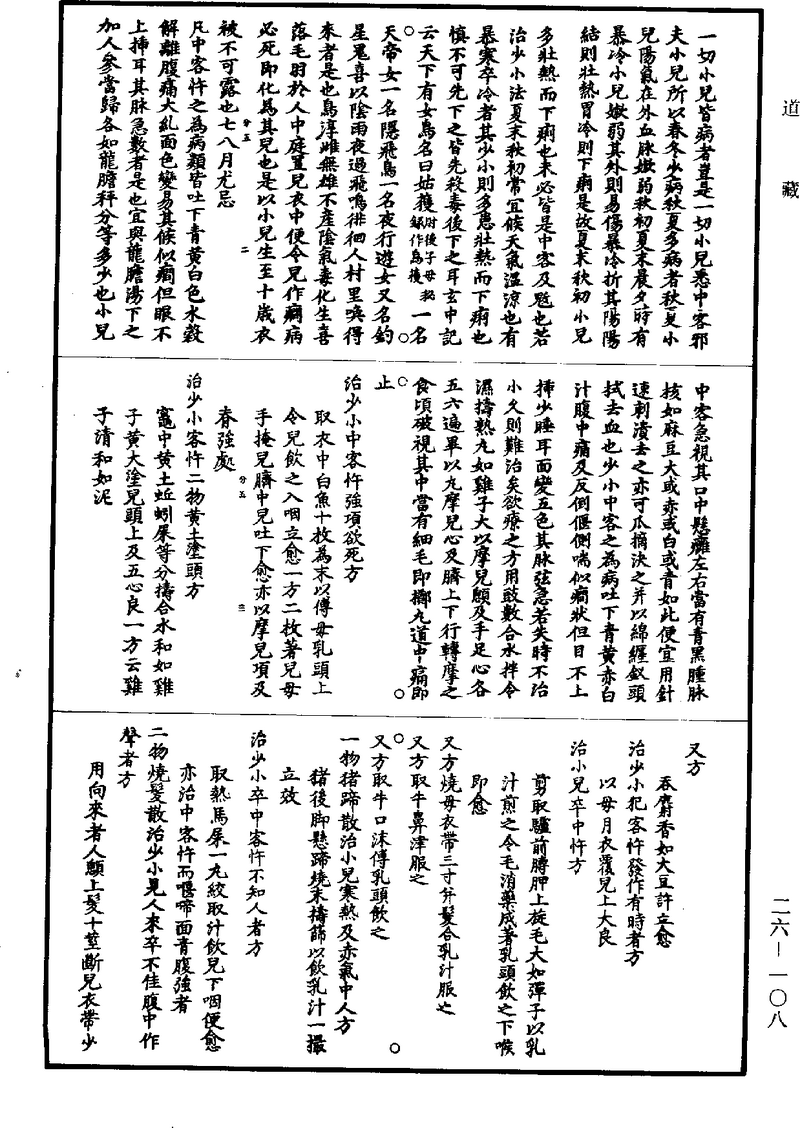 道藏
一切小兒皆病者豈是一切小兒悉中客邪
夫小兒所以春冬少病秋夏多病者秋夏小
兒陽氣在外血脉嫩弱秋初夏末晨夕時有
暴冷小兒嫩弱其外則易傷暴冷折其陽陽
結則壯熱胃冷則下痢是故夏末秋初小兒
多壯熱而下痢也未必皆是中客及鬾也若
治少小法夏末秋初常宜候天氣溫涼也有
暴寒卒冷者其少小則多患壯熱而下痢也
慎不可先下之皆先殺毒後下之耳玄中記
云天下有女鳥名曰姑獲肘後子母秘錄作烏獲一名
天帝女一名隱飛鳥一名夜行遊女又名釣
星鬼喜以陰雨夜過飛鳴徘徊人村里喚得
來者是也鳥淳雌無雄不產陰氣毒化生喜
落毛羽於人中庭置兒衣中便令兒作癇病
必死即化為其兒也是以小兒生至十歲衣
被不可露也七八月尤忌
凡中客忤之為病類皆吐下青黃白色水穀
解離腹痛大亂面色變易其候似癇但眼不
上插耳其脉急數者是也宜與龍膽湯下之
加人參當歸各如龍膽秤分等多少也小兒
中客急視其口中懸癰左右當有青黑腫脉
核如麻豆大或赤或白或青如此便宜用針
速刺潰去之亦可爪摘決之并以綿纏釵頭
拭去血也少小中客之為病吐下青黃赤白
汁腹中痛及反倒偃側喘似癇狀但目不上
插少睡耳面變五色其脉弦急若失時不治
小久則難治矣欲療之方用豉數合水拌令
濕擣熟丸如雞子大以摩兒顖及手足心各
五六遍畢以丸摩兒心及臍上下行轉摩之
食頃破視其中當有細毛即擲丸道中痛即
止
治少小中客忤強項欲死方
取衣中白魚十枚為末以傅母乳頭上
令兒飲之入咽立愈一方二枚著兒母
手掩兒臍中兒吐下愈亦以摩兒項及
脊強處
治少小客忤二物黃土塗頭方
竈中黃土蚯蚓屎等分擣合水和如雞
子黃大塗兒頭上及五心良一方云雞
子清和如泥
又方
吞麝香如大豆許立愈
治少小犯客忤發作有時者方
以母月衣覆兒上大良
治小兒卒中忤方
剪取驢前膊胛上旋毛大如彈子以乳
汁煎之令毛消藥成著乳頭飲之下喉
即愈
又方燒母衣帶三寸并髮合乳汁服之
又方取牛鼻津服之
又方取牛口沫傅乳頭飲之
一物猪蹄散治小兒寒熱及赤氣中人方
猪後脚懸蹄燒末擣篩以飲乳汁一撮
立效
治少小卒中客忤不知人者方
取熱馬屎一丸絞取汁飲兒下咽便愈
亦治中客忤而㖶啼面青腹強者
二物燒髮散治少小見人來卒不佳腹中作
聲者方
用向來者人顖上髮十莖斷兒衣帶少
二六—一〇八